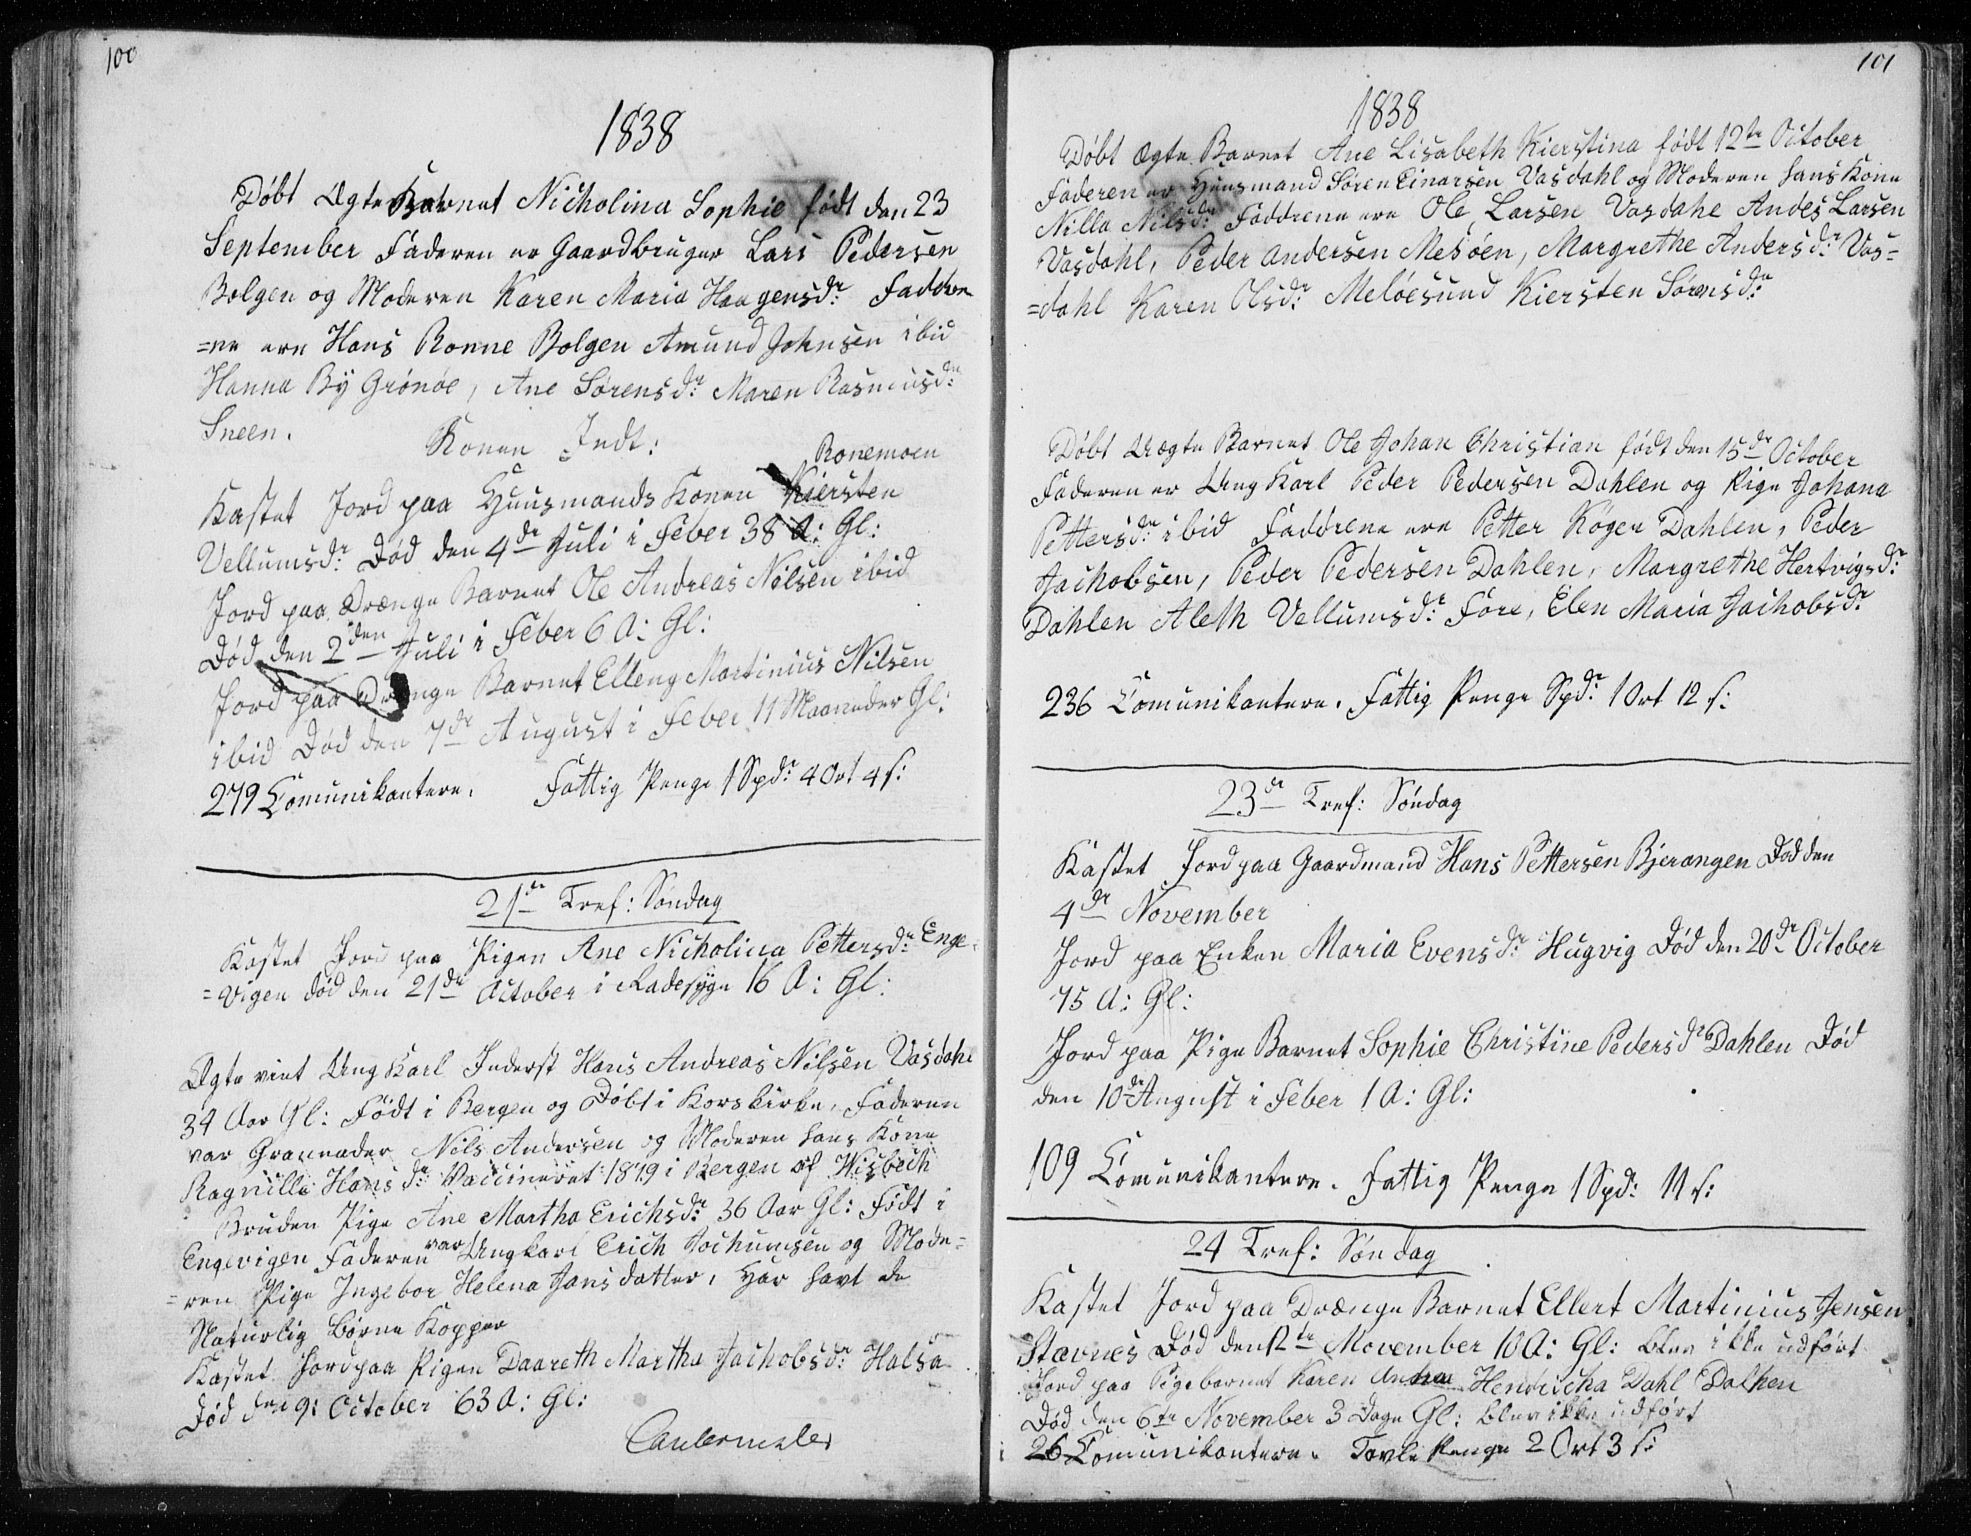 100
1838
Døbt Ægte Barnet Nicholina Sophie født den 23
September Faderen er Gaardbruger Lars Pedersen
Bolgen og Moderen Karen Maria Haagensdr: Faddre
=ne ere Hans Ronne Bolgen Amund Johnsen ibid
Hanna By Grönöe, Ane Sørensdr: Maren Rasmusdr:
Sneen.
Konen Indt:
Ronemoen
Kastet Jord paa Huusmands Konen Kiersten
Vellumsdr: Død den 4de Juli i Feber 38 A: Gl:
Jord paa Drænge Barnet Ole Andreas Nilsen ibid
Død den 2den Juli i Feber 6 A: Gl:
Jord paa Drænge Barnet Elleng Martinius Nilsen
ibid Død den 7de August i Feber 11 Maaneder Gl:
279 Comunikantere. Fattig Penge 1 Spdr: 4 Ort 4 s:
21de Tref: Søndag
Kastet Jord paa Pigen Ane Nicholina Pettersdr: Enge
=vigen død den 21de October i Radesyge 16 A: Gl:
Ægte viet Ung Karl Inderst Hans Andreas Nilsen Vasdahl
34 Aar Gl: Født i Bergen og Døbt i Korskirke, Faderen
var Grannader Nils Andersen og Moderen hans Kone
Ragnille Hansdr: Vaccineret 1819 i Bergen af Wisbech
Bruden Pige Ane Martha Erichsdr: 36 Aar Gl: Født i
Engevigen Faderen var Ungkarl Erich Jochumsen og Mode=
=ren Pige Ingebor Helena Jansdatter, Har havt de
Naturlig Børne Kopper
Kastet Jord paa Pigen Daareth Martha Jachobsdr: Halsa
Død den 9: October 63 A: Gl:
101
1838
Døbt Ægte Barnet Ane Lisabeth Kierstina født 12te October
Faderen er Huusmand Sören Einarsen Vasdahl og Moderen hans Kone
Nilla Nilsdr: Faddrene ere Ole Larsen Vasdahl Andes Larsen
Vasdahl, Peder Andersen Mesöen, Margrethe Andersdr: Vas=
=dahl Karen Olsdr: Melöesund Kiersten Sörensdr:
Døbt Uægte Barnet Ole Johan Christian født den 15de October
Faderen er Ung Karl Peder Pedersen Dahlen og Pige Johana
Pettersdr: ibid Faddrene ere Petter Kögen Dahlen, Peder
Jachobsen, Peder Pedersen Dahlen, Margrethe Hertvigsdr:
Dahlen Aleth Vellumsdr: Före, Elen Maria Jachobsdr
236 Comunikantere. Fattig Penge Spdr: 1 Ort 12 s:
23de Tref: Søndag
Kastet Jord paa Gaardmand Hans Pettersen Bjerangen Død den
4de November
Jord paa Enken Maria Evensdr: Hugvig Død den 20de October
75 A: Gl:
Jord paa Pige Barnet Sophie Christine Pedersdr Dahlen Død
den 10de August i Feber 1 A: Gl:
109 Comunikantere. Fattig Penge 1 Spd: 11 s:
24 Tref: Søndag
Kastet Jord paa Drænge Barnet Ellert Martinius Jensen
Stavnes Død den 12te November 10 A: Gl: blev ikke udført
Jord paa Pigebarnet Karen Andrea Hendricka Dahl Dalhen
Død den 6te November 3 Dage Gl: blev ikke udført
26 Comunikantere. Tavle Penge 2 Ort 3 s: